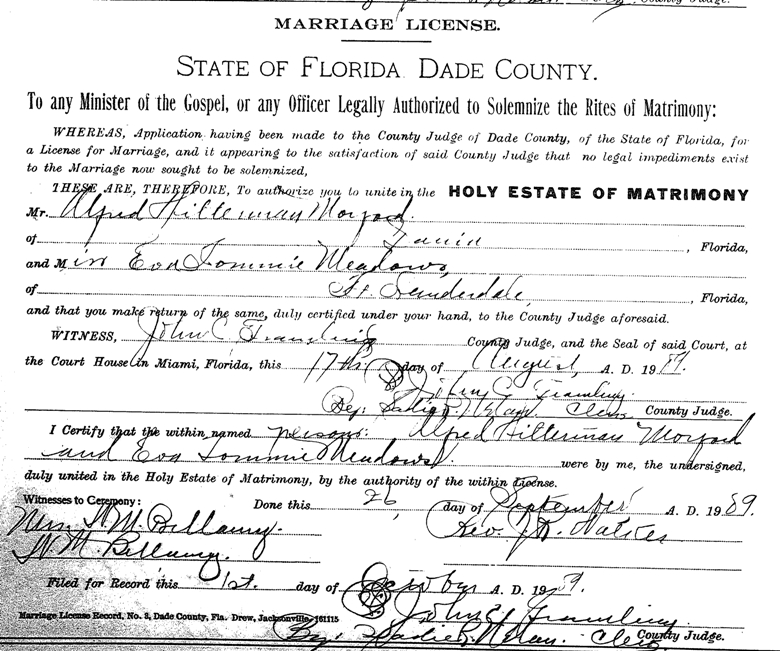 County Judge.
MARRIAGE LICENSE.
STATE OF FLORIDA DADE COUNTY.
To any Minister of the Gospel, or any Officer Legally Authorized to Solemnize the Rites of Matrimony:
WHEREAS, Application having been made to the County Judge of Dade County, of the State of Florida, for
a License for Marriage, and it appearing to the satisfaction of said County Judge that no legal impediments exist
to the Marriage now sought to be solemnized,
THESE ARE, THEREFORE, To authorize you to unite in the HOLY ESTATE OF MATRIMONY
Mr. Alfred Hilterman Morford
of Dania, Florida,
and Miss Eva Tommie Meadows,
of Ft. Lauderdale, Florida,
and that you make return of the same, duly certified under your hand, to the County Judge aforesaid.
WITNESS, John C. Gramling County Judge, and the Seal of said Court, at
the Court House in Miami, Florida, this 17th day of August, A. D. 19
John C. Gramling
By: Clerk County Judge.
I Certify that the within named persons: Alfred Hilterman Morford
and Eva Tommie Meadows were by me, the undersigned,
duly united in the Holy Estate of Matrimony, by the authority of the within License.
Witnesses to Ceremony: Done this 26 day of September A. D. 19
W. M. Bellamy. Rev.
W. M. Bellamy.
Filed for Record this 1st. day of A. D. 19
John C. Gramling
Marriage License Record, No. 3, Dade County, Fla. Drew, Jacksonville, 161115
By: Clerk County Judge.